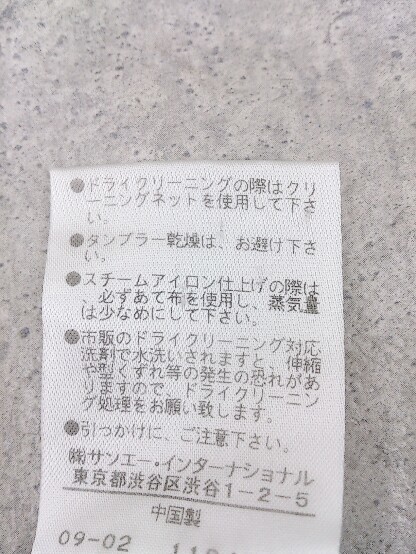 ●ドライクリーニングの際はクリ
ーニングネットを使用して下さ
い。
●タンブラー乾燥は、お避け下さ
い。
●スチームアイロン仕上げの際は
、必ずあて布を使用し、蒸気量
は少なめにして下さい。
●市販のドライクリーニング対応
洗剤で水洗いされますと、伸縮
や型くずれ等の発生の恐れがあ
りますので、ドライクリーニン
グ処理をお願い致します。
●引っかけに、ご注意下さい。
㈱サンエー・インターナショナル
東京都渋谷区渋谷1-2-5
中国製
09-02